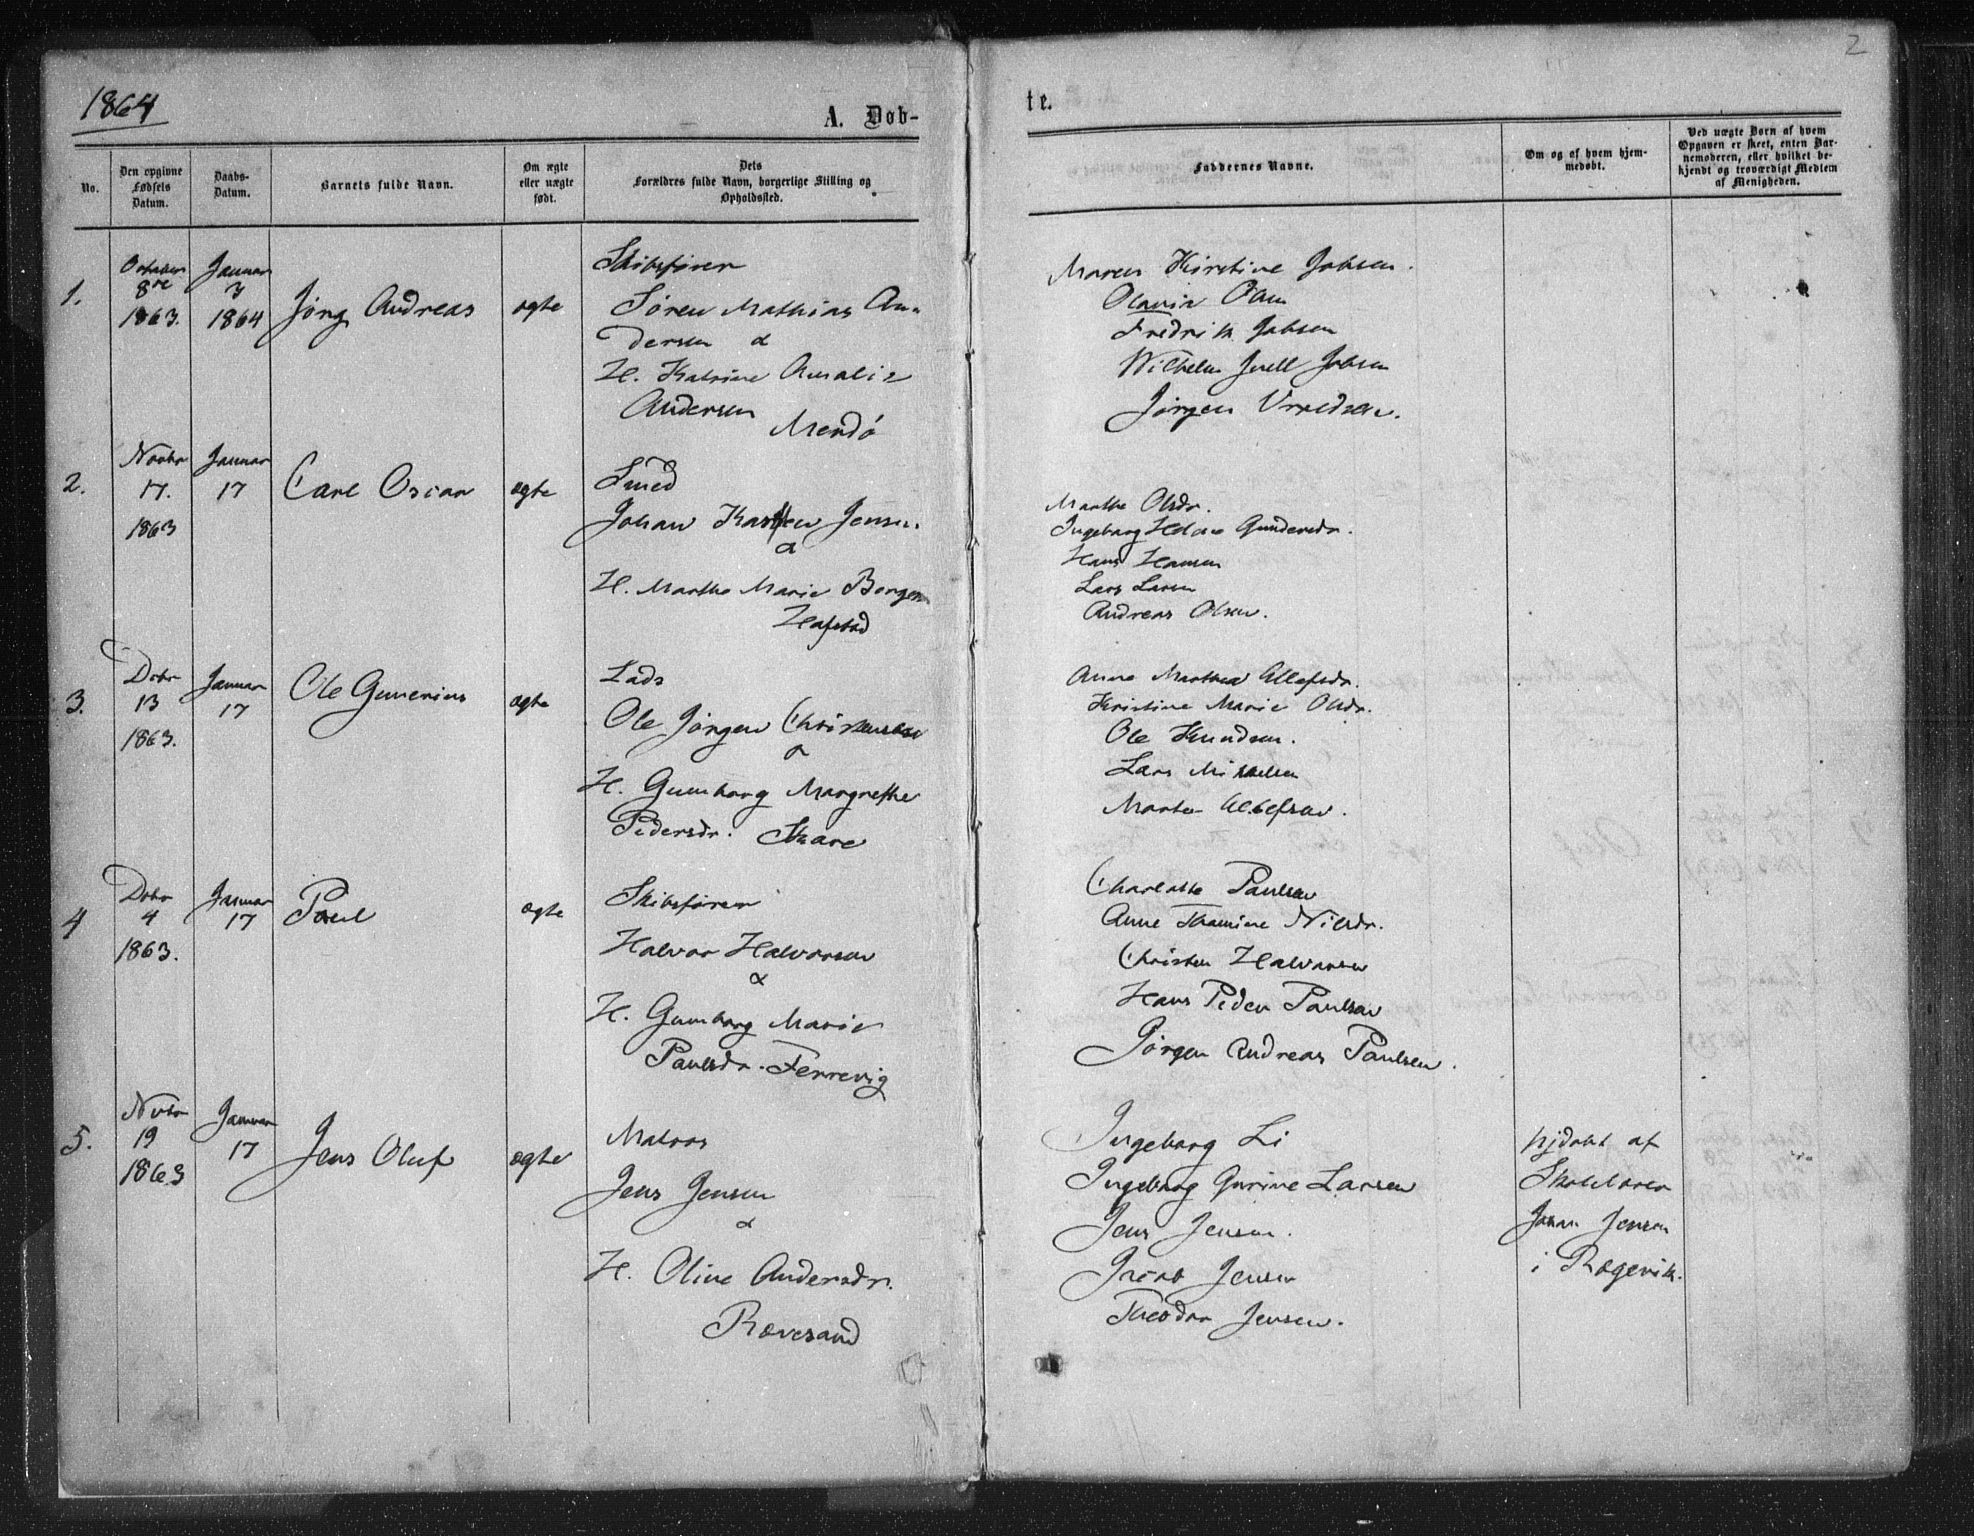 1864
2
A. Døb-
te.
No.
Den opgivne Fødsels Datum.
Daabs-Datum.
Barnets fulde Navn.
Om ægte eller uægte født.
Dets Forældres fulde Navn, borgerlige Stilling og Opholdssted.
Faddernes Navne.
Om og af hvem hjemmedøbt.
Ved uægte Børn af hvem Opgaven er skeet, enten Barnemoderen, eller hvilket bekjendt og troværdigt Medlem af Menigheden.
1.
October
8de
1863.
Januar
3
1864
Jörg Andreas
ægte
Skibsfører
Søren Mathias An-
dersen &
H. Katrine Amalie
Andersen
Merdö
Maren Kirstine Jobsen.
Olavia Olsen
Fredrik Jobsen
Wilhelm Juell Jobsen
Jørgen
2.
Novbr
17.
1863
Januar
17
Carl Oscar
ægte
Smed
Johan Karsten Jensen.
&
H. Marthe Marie Borgen
Hafstad
Marthe Olsdr.
Ingeborg Helene Gundersdr.
Hans Hansen
Lars Larsen
Andreas Olsen.
3.
Dcbr
13
1863.
Januar
17
Ole Gunerius
ægte
Lods
Ole Jørgen Christensen
&
H. Gunborg Margrethe
Pedersdr. Skare
Anne Marthea Ellefsdr.
Kristine Marie Olsdr.
Ole Knudsen.
Lars Mikkelsen
Ellefsen.
4
Dcbr
4
1863.
Januar
17
Paul
ægte
Skibsfører
Halvor Halvorsen
&
H. Gunborg Marie
Paulsdr. Ferrevig
Charlotte Paulsen
Anne Thomine Nilsdr.
Christen Halvorsen
Hans Peder Paulsen
Jørgen Andreas Paulsen.
5.
Nvbr
19
1863
Januar
17
Jens Oluf
ægte
Matros
Jens Jensen
&
H. Oline Andersdr.
Rævesand
Ingeborg Li
Ingeborg Gurine Larsen
Jens Jensen.
Jensen
Theodor Jensen.
hjdøbt af
Skolelærer
Johan Jensen
i Rægevik.